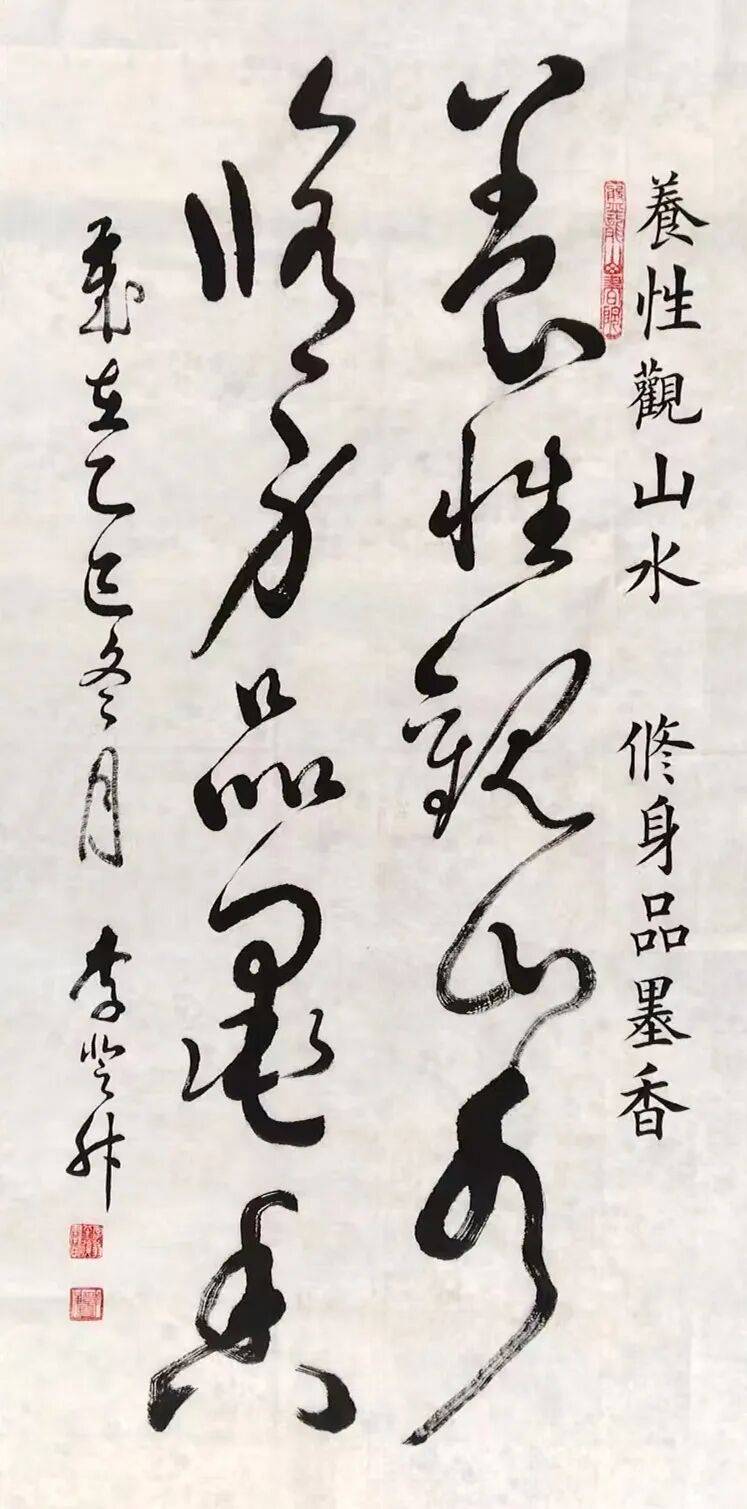 養性觀山水 修身品墨香
養性觀山水
修身品墨香
歲在乙巳冬月 李